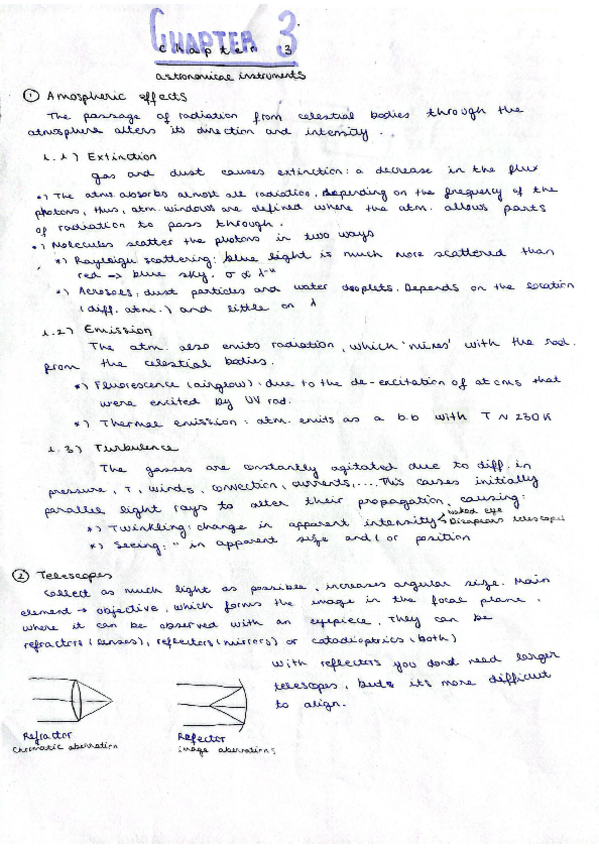 CHAPTER 3
chapter 3
astronomical instruments
① Amospheric effects
The passage of radiation from celestial bodies through the
atmosphere alters its direction and intensity.
1.1) Extinction
gas and dust causes extinction: a decrease in the flux
*) The atms absorbs almost all radiation, depending on the frequency of the
photons, thus, atm. windows are defined where the atm. allows parts
of radiation to pass through.
*) Molecules scatter the photons in two ways
*) Rayleigh scattering: blue light is much more scattered than
red => blue sky. σ ∝ λ⁻⁴
*) Aerosols, dust particles and water droplets. Depends on the location
(diff. atm.) and little on λ
1.2) Emission
The atm. also emits radiation, which 'mixes' with the rad.
from the celestial bodies.
*) Fluorescence (airglow): due to the de-excitation of atoms that
were excited by UV rad.
*) Thermal emission: atm. emits as a b.b with T ~ 250K
1.3) Turbulence
The gasses are constantly agitated due to diff. in
pressure, T, winds, convection, currents,.... This causes initially
parallel light rays to alter their propagation, causing:
*) Twinkling: change in apparent intensity naked eye
Disapears telescopes
*) Seeing: " in apparent size and/or position
② Telescopes
Collect as much light as possible, increases angular size. Main
element → objective, which forms the image in the focal plane,
where it can be observed with an eyepiece. They can be
refractors (lenses), reflectors (mirrors) or catadioptrics (both)
With reflectors you dond need larger
telescopes, but its more difficult
to align.
Refractor
chromatic aberration
Reflector
image aberrations